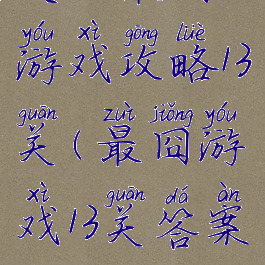 yóu xì gōng lüè
游戏攻略13
guān zuì jiǒng yóu
关(最囧游
xì guān dá àn
戏13关答案